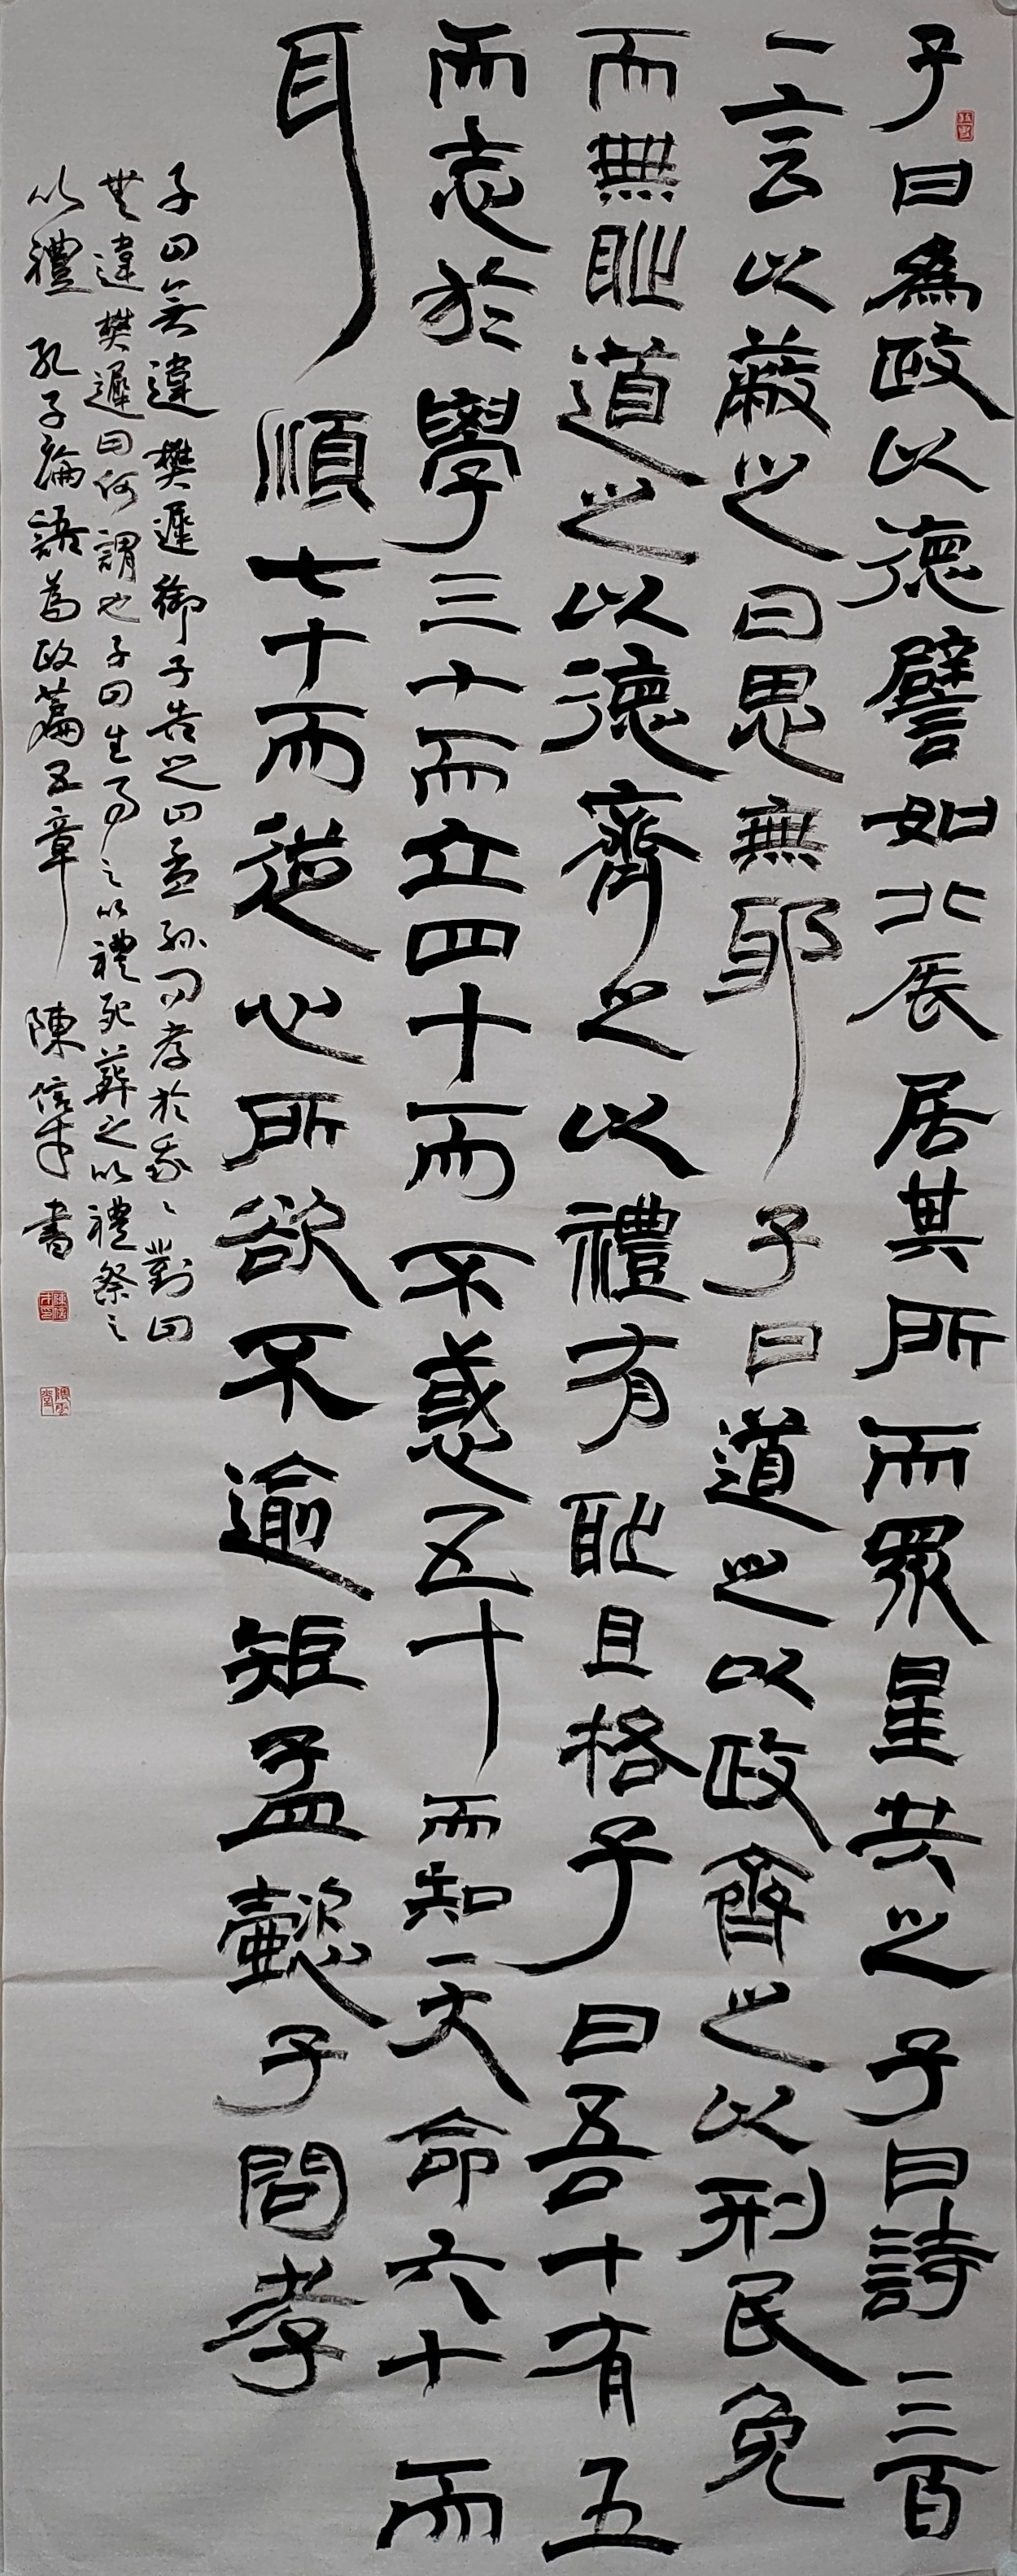 子曰為政以德譬如北辰居其所而眾星共之子曰詩三百
一言以蔽之曰思無邪子曰道之以政齊之以刑民免
而無恥道之以德齊之以禮有恥且格子曰吾十有五
而志於學三十而立四十而不惑五十而知天命六十而
耳順七十而從心所欲不逾矩孟懿子問孝
子曰無違樊遲御子告之曰孟孫問孝於我〻對曰
無違樊遲曰何謂也子曰生事之以禮死葬之以禮祭之
以禮 孔子論語為政篇五章 陳信 書